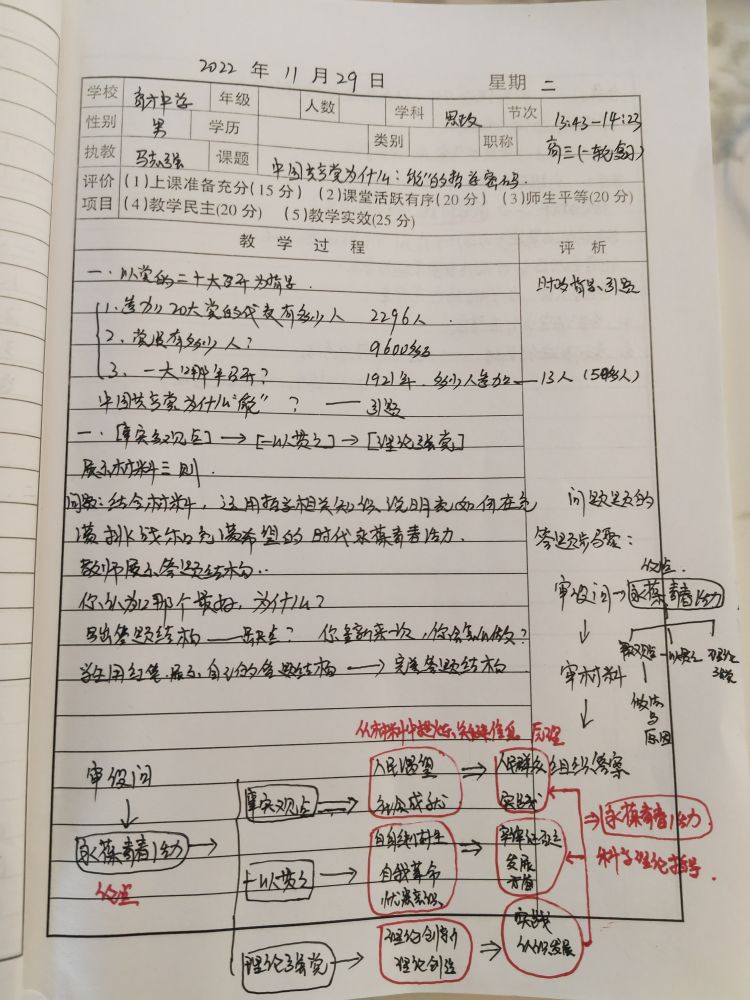 2022 年 11 月 29 日 星期 二
学校 育才中学 年级 人数 学科 思政 节次 13:43—14:23
性别 男 学历 类别 职称 高三(一轮复习)
执教 课题 中国共产党为什么"能"的哲学密码.
评价 (1)上课准备充分(15分) (2)课堂活跃有序(20分) (3)师生平等(20分)
项目 (4)教学民主(20分) (5)教学实效(25分)
教 学 过 程 评 析
一. 以党的二十大召开为背景. 时政背景、引题
1. 参加20大党的代表有多少人 2296人.
2. 党员有多少人? 9600多万
3. 一大哪年召开? 1921年. 多少人参加—13人(50多人)
中国共产党为什么"能"? —— 引题
一. [事实观点] → [一以贯之] → [理论强党]
展示材料三则.
问题: 结合材料, 运用哲学相关知识说明我党如何在充 问题题的
满挑战和充满希望的时代永葆青春活力. 答题步骤:
教师展示答题结构..
你认为哪个最好, 为什么? 审设问→永葆青春活力
论点
写出答题结构——缺点? 你重新来一次, 你会怎么做?
学生用红笔展示自己的答题结构 → 完善答题结构
审材料
一以贯之
理论强党
做法与原因
从材料中提炼关键信息 原理
审设问
永葆青春活力 →
论点
事实观点 ⇒ 人民愿望 社会成就 ⇒ 人民群众 实践 组织答案
一以贯之 → 自我革命 忧患意识 ⇒ 发展 方面
理论强党 → 理论创新 理论创造 ⇒ 实践 认识发展
⇒ 永葆青春活力
科学理论指导.